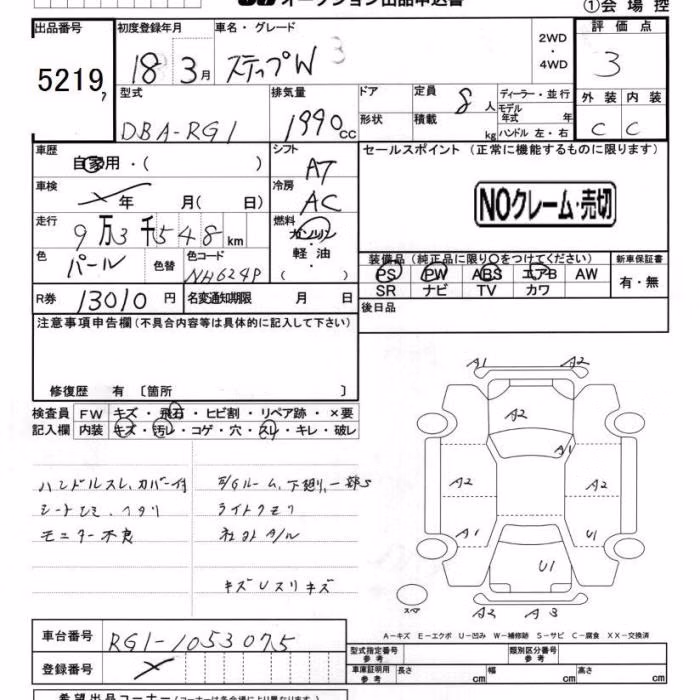 オークション出品申込書
①会場控
出品番号 初度登録年月 車名・グレード 2WD・4WD 評価点
5219 18年 3月 ステップW 3
型式 排気量 ドア 定員 8人 ディーラー・並行 外装 内装
DBA-RG1 1990cc 形状 積載 kg モデル年式 年 ハンドル 左・右 C C
車歴 自家用・( ) シフト AT セールスポイント (正常に機能するものに限ります)
車検 年 月( 日) 冷房 AC
NOクレーム・売切
走行 9万3千548km 燃料 ガソリン・軽油・( )
色 パール 色替 色コード NH624P
装備品 (純正品に限り○をつけてください) 新車保証書
PS PW ABS エアB AW 有・無
SR ナビ TV カワ
R券 13010円 名変通知期限 月 日 後日品
注意事項申告欄(不具合内容等は具体的に記入して下さい)
修復歴 有 〔箇所 〕
検査員 FW キズ・飛石・ヒビ割・リペア跡・×要
記入欄 内装 キズ・汚レ・コゲ・穴・スレ・キレ・破レ
ハンドルスレ、カバー付
シートシミ、ヘタリ
モニター不良
E/Gルーム、下廻り、一部S
ライトクモリ
社外アルミ
キズUスリキズ
A1 A2
A2
A1
A2 A2
A1 U1
U1
スペア
A2 A3
A-キズ E-エクボ U-凹み W-補修跡 S-サビ C-腐食 XX-交換済
車台番号 RG1-1053075
登録番号
型式指定番号 参考 類別区分番号 参考
車庫証明用 参考 長さ cm 幅 cm 高さ cm
希望出品コーナー